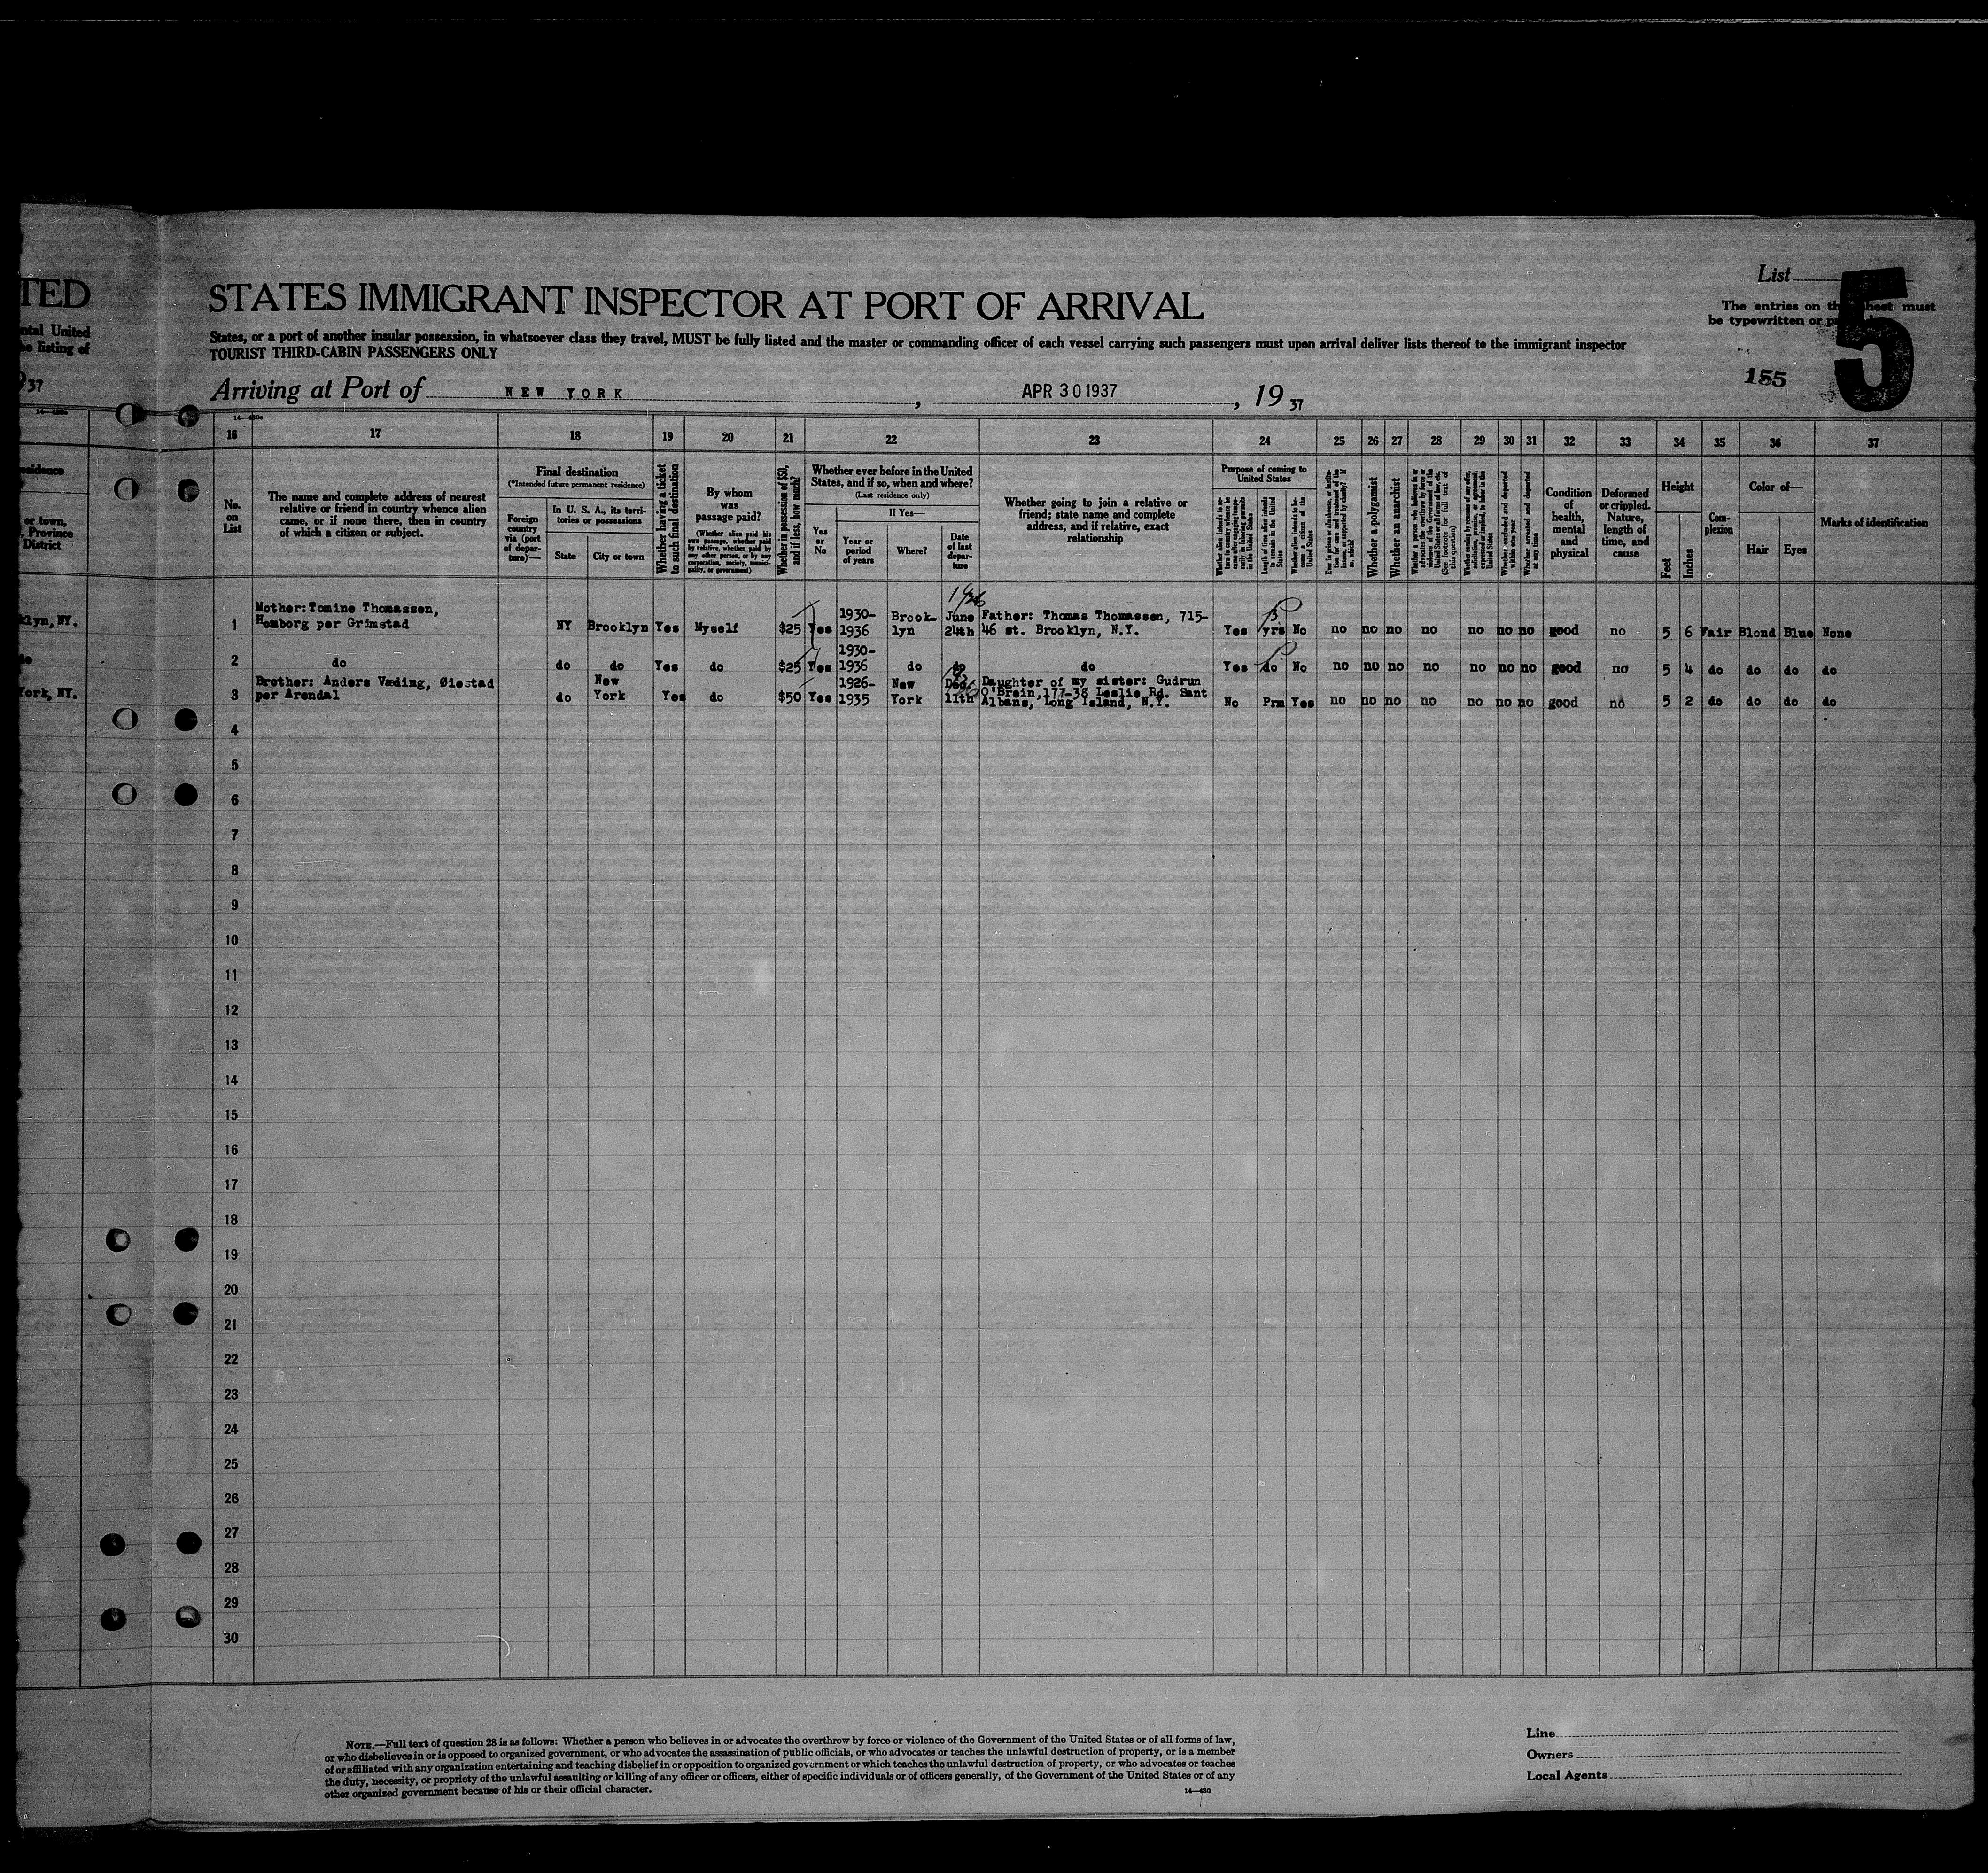 TED
STATES IMMIGRANT INSPECTOR AT PORT OF ARRIVAL
List
5
The entries on this sheet must
be typewritten or
ntal United
e listing of
States, or a port of another insular possession, in whatsoever class they travel, MUST be fully listed and the master or commanding officer of each vessel carrying such passengers must upon arrival deliver lists thereof to the immigrant inspector
TOURIST THIRD-CABIN PASSENGERS ONLY
37
Arriving at Port of NEW YORK, APR 30 1937, 19 37
155
16 17 18 19 20 21 22 23 24 25 26 27 28 29 30 31 32 33 34 35 36 37
No.
on
List
The name and complete address of nearest
relative or friend in country whence alien
came, or if none there, then in country
of which a citizen or subject.
Final destination
(*Intended future permanent residence)
Foreign
country
via (port
of depar-
ture)—
In U. S. A., its terri-
tories or possessions
State
City or town
Whether having a ticket
to such final destination
By whom
was
passage paid?
(Whether alien paid his
own passage, whether paid
by relative, whether paid by
any other person, or by any
corporation, society, munici-
pality, or government)
Whether in possession of $50,
and if less, how much?
Whether ever before in the United
States, and if so, when and where?
(Last residence only)
Yes
or
No
If Yes—
Year or
period
of years
Where?
Date
of last
depar-
ture
Whether going to join a relative or
friend; state name and complete
address, and if relative, exact
relationship
Purpose of coming to
United States
Whether a polygamist
Whether an anarchist
Whether excluded and deported
within one year
Whether arrested and deported
at any time
Condition
of
health,
mental
and
physical
Deformed
or crippled.
Nature,
length of
time, and
cause
Height
Feet
Inches
Com-
plexion
Color of—
Hair
Eyes
Marks of identification
or town,
Province
District
klyn, NY.
1 Mother: Tomine Thomassen,
Homborg per Grimstad
NY Brooklyn Yes Myself $25 Yes 1930-
1936 Brook-
lyn June
24th
1936
Father: Thomas Thomassen, 715-
46 st. Brooklyn, N.Y.
Yes yrs No no no no no no no no good no 5 6 Fair Blond Blue None
2 do do do Yes do $25 Yes 1930-
1936 do do do Yes do No no no no no no no no good no 5 4 do do do do
York, NY.
3 Brother: Anders Væding, Øiestad
per Arendal
do New
York Yes do $50 Yes 1926-
1935 New
York 11th
Daughter of my sister: Gudrun
O'Brein, 177-38 Leslie Rd. Sant
Albans, Long Island, N.Y.
No Prm Yes no no no no no no no good no 5 2 do do do do
4
5
6
7
8
9
10
11
12
13
14
15
16
17
18
19
20
21
22
23
24
25
26
27
28
29
30
NOTE.—Full text of question 28 is as follows: Whether a person who believes in or advocates the overthrow by force or violence of the Government of the United States or of all forms of law,
or who disbelieves in or is opposed to organized government, or who advocates the assassination of public officials, or who advocates or teaches the unlawful destruction of property, or is a member
of or affiliated with any organization entertaining and teaching disbelief in or opposition to organized government or which teaches the unlawful destruction of property, or who advocates or teaches
the duty, necessity, or propriety of the unlawful assaulting or killing of any officer or officers, either of specific individuals or of officers generally, of the Government of the United States or of any
other organized government because of his or their official character.
14—430
Line
Owners
Local Agents